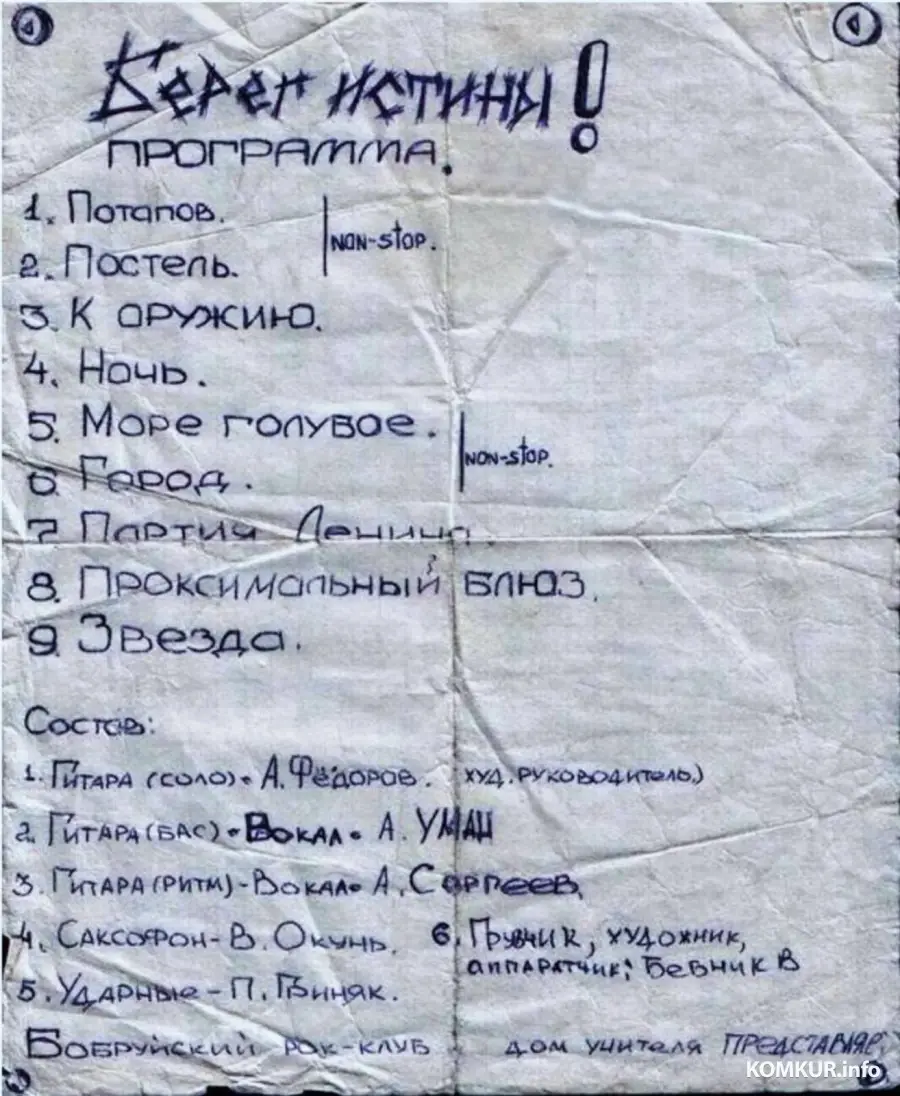 Берег истины!
ПРОГРАММА.
1. Потапов.
NON-STOP.
2. Постель.
3. К оружию.
4. Ночь.
5. Море голубое.
NON-STOP.
6. Город.
7 Партия Ленина.
8. Проксимальный блюз.
9. Звезда.
Состав:
1. Гитара (соло). А. Фёдоров. худ. руководитель)
2. Гитара (бас) - Вокал - А. УМАН
3. Гитара (ритм) - Вокал - А. Сергеев.
4. Саксофон - В. Окунь.
6. Грузчик, художник,
аппаратчик: Бевник В
5. Ударные - П.
Бобруйский рок-клуб дом учителя ПРЕДСТАВЛЯЕ
KOMKUR.info